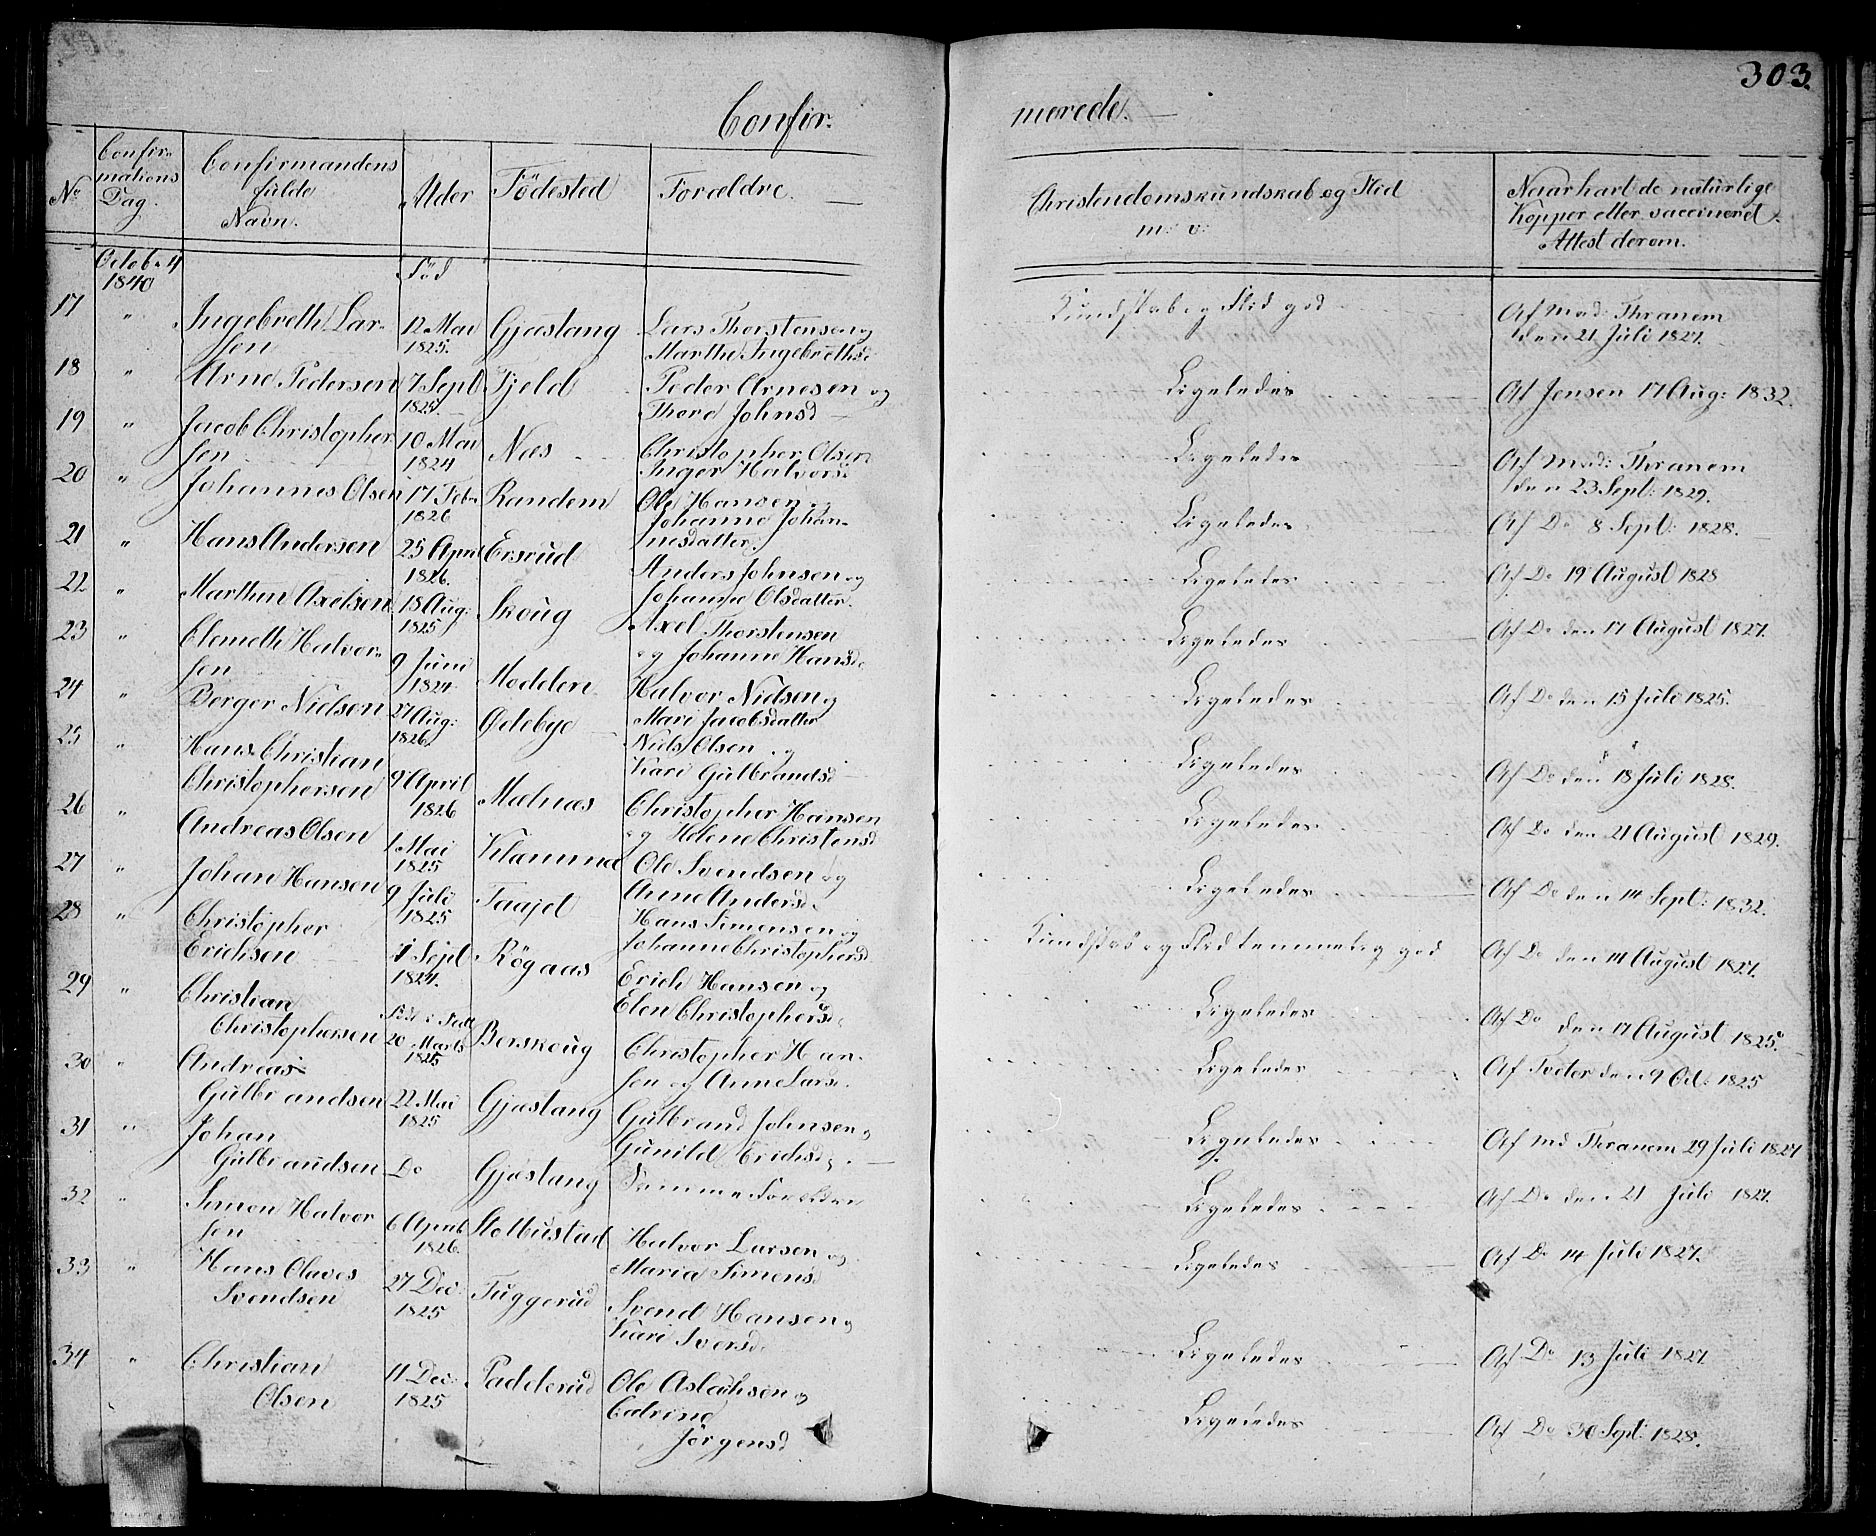 303.
Confir-
merede.
No
Confir-
mations
Dag.
Confirmandens
fulde
Navn.
Alder
Födested
Forældre.
Christendomskundskab og Flid
m: v:
Naar havt de naturlige
Kopper eller vaccineret.
Attest derom.
Octob. 4
1840
Föd
17 " Ingebreth Lar-
sen
12 Mai
1825.
Gjæstang
Lars Thorstensen og
Marthe Ingebrethsd
Kundskab og Flid god
Af Mad: Thranem
den 21 Juli 1827.
18 " Arne Pedersen
7 Sept
1825
Fjeld
Peder Arnesen og
Thore Johnsd
Ligeledes
Af Jensen 17 Aug: 1832.
19 " Jacob Christopher
sen
10 Mai
1824
Næs
Christopher Olsen
Inger Halvorsd
Ligeledes
Af Mad: Thranem
den 23 Sept: 1829.
20 " Johannes Olsen
17 Feb.
1826
Randem
Ole Hansen og
Johanne Johan-
nesdatter.
Ligeledes
Af Do 8 Sept: 1828.
21 " Hans Andersen
25 April
1826.
Ersrud
Anders Johnsen og
Johanne Olsdatter.
Ligeledes
Af Do 19 August 1828
22 " Marthin Axelsen
18 Aug:
1825
Skoug
Axel Thorstensen
og Johanne Hansd.
Ligeledes
Af Do den 17 August 1827.
23 " Clemeth Halvor-
sen
9 Juni
1824
Modden
Halvor Nielsen og
Mari Jacobsdatter
Ligeledes
Af Do den 15 Juli 1825.
24 " Berger Nielsen
27 Aug:
1826.
Ödebye
Niels Olsen og
Kari Gulbrandsd
Ligeledes
Af Do den 18 Juli 1828.
25 " Hans Christian
Christophersen
9 April
1826
Melnæs
Christopher Hansen
og Helene Christensd
Ligeledes
Af Do den 21 August 1829.
26 " Andreas Olsen
1 Mai
1825
Klæmma
Ole Svendsen og
Anne Andersd.
Ligeledes
Af Do den 14 Sept: 1832.
27 " Johan Hansen
9 Juli
1825
Taajet
Hans Simensen og
Johanne Christophersd
Kundskab og Flid temmelig god
Af Do den 14 August 1827.
28 " Christopher
Erichsen
1 Sept
1824.
Rögaas
Erich Hansen og
Elen Christophersd.
Ligeledes
Af Do den 17 August 1825.
29 " Christian
Christophersen
20 Marts
1825
Berskoug
Christopher Han-
sen og Anne Larsd.
Ligeledes
Af Tveter den 9 Oct: 1825
30 " Andreas
Gulbrandsen
22 Mai
1825
Gjæstang
Gulbrand Johnsen og
Gunild Erichsd.
Ligeledes
Af Md Thranem 29 Juli 1827
31 " Johan
Gulbrandsen
Do
Gjæstang
Samme Forældre
Ligeledes
Af Do den 21 Juli 1827.
32 " Simon Halvor
sen
6 April
1826.
Stolbustad
Halvor Larsen og
Maria Simensd
Ligeledes
Af Do 14 Juli 1827.
33 " Hans Olaves
Svendsen
27 Dec:
1825
Tuggerud
Svend Hansen og
Kari Iversd.
Ligeledes
Af Do 13 Juli 1827
34 " Christian
Olsen
11 Dec:
1825
Padderud
Ole Aslachsen og
Catrine
Jörgensd
Ligeledes
Af Do 30 Sept: 1828.